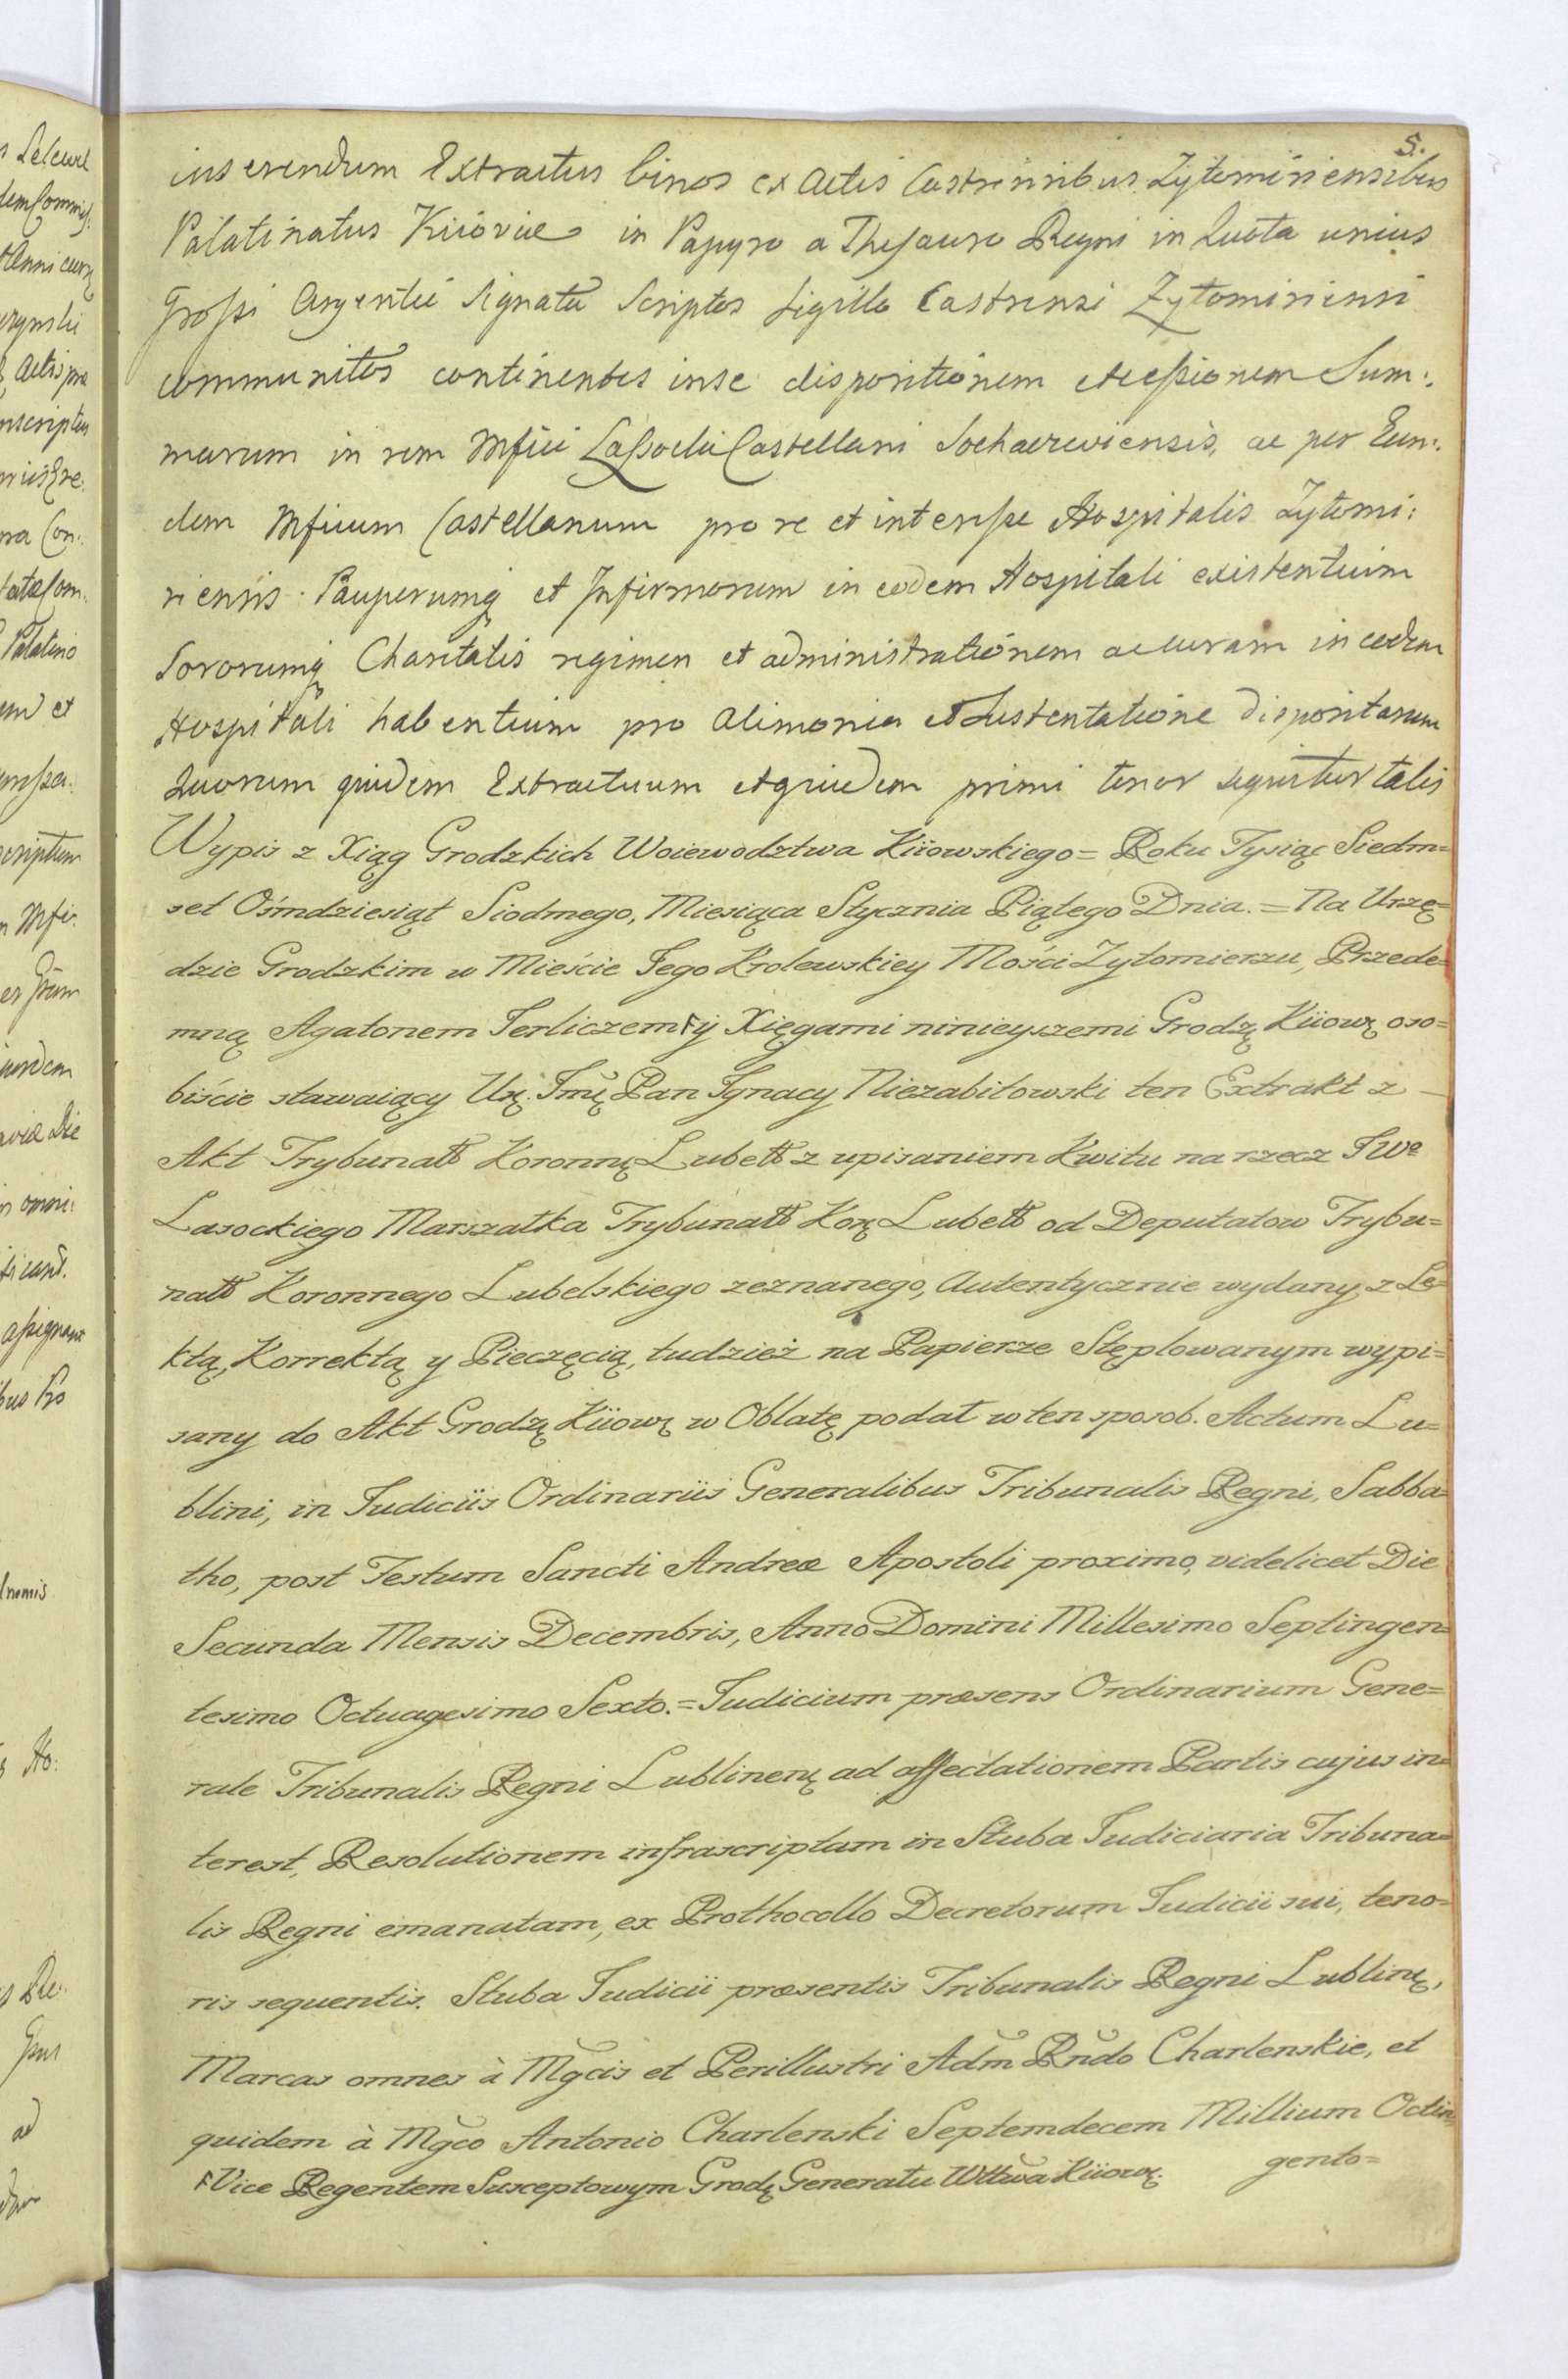 5.
inserendum Extractus binos ex Actis Castrensibus Zytomiriensibus
Palatinatus Kiioviae in Papyro a Thesauro Regni in Quota unius
Grossi Argentei Signata Scriptos Sigillo Castrensi Zytomiriensi
communitos continentes inse dispositionem et cessionem Sum:
marum in rem Mfici Lassocki Castellani Sochaczeviensis, ac per Eun:
dem Mficum Castellanum pro re et interesse Hospitalis Zytomi:
riensis Pauperumq et Infirmorum in eodem Hospitali existentium
Sororumq Charitatis regimen et administrationem accuram in eodem
Hospitali habentium pro Alimonia et Sustentatione dispositarum
Quorum quidem Extractuum et quidem primi tenor sequitur talis
Wypis z Xiąg Grodzkich Woiewodztwa Kiiowskiego = Roku Tysiąc Siedm=
set Ośmdziesiąt Siodmego, Miesiąca Stycznia Piątego Dnia. = Na Urzę=
dzie Grodzkim w Mieście Jego Krolewskiey Mości Zytomierzu, Przede=
mną Agatonem Jerliczem ꟻ ÿ Xięgami ninieyszemi Grodzę Kiiowę oso=
biście stawaiący Urę. Jmę Pan Ignacy Niezabitowski ten Extrakt z –
Akt Trybunałł Koronnę Lubełł z upisaniem Kwitu na rzecz JWo
Lasockiego Marszałka Trybunałł Korę Lubełł od Deputatow Trybu=
nałł Koronnego Lubelskiego zeznanego, Autentycznie wydany, z Le=
ktą, Korrektą y Pieczęcią, tudzież na Papierze Stęplowanym wypi=
sany do Akt Grodzę Kiiowę w Oblatę podał w ten sposob. Actum Lu=
blini, in Judiciis Ordinariis Generalibus Tribunalis Regni, Sabba=
tho, post Festum Sancti Andreæ Apostoli proximo, videlicet Die
Secunda Mensis Decembris, Anno Domini Millesimo Septingen=
tesimo Octuagesimo Sexto. = Judicium præsens Ordinarium Gene=
rale Tribunalis Regni Lublinenę ad affectationem Partis cujus in=
terest, Resolutionem infrascriptam in Stuba Judiciaria Tribuna=
lis Regni emanatam, ex Prothocollo Decretorum Judicii sui, teno=
ris sequentis. Stuba Judicii præsentis Tribunalis Regni Lublinę,
Marcas omnes à Mgcis et Perillustri Adm Rndo Charlenskie, et
quidem à Mgco Antonio Charlenski Septemdecem Millium Octin
gento=
ꟻ Vice Regentem Susceptowym Grodę Generału Wttwa Kiiowę.